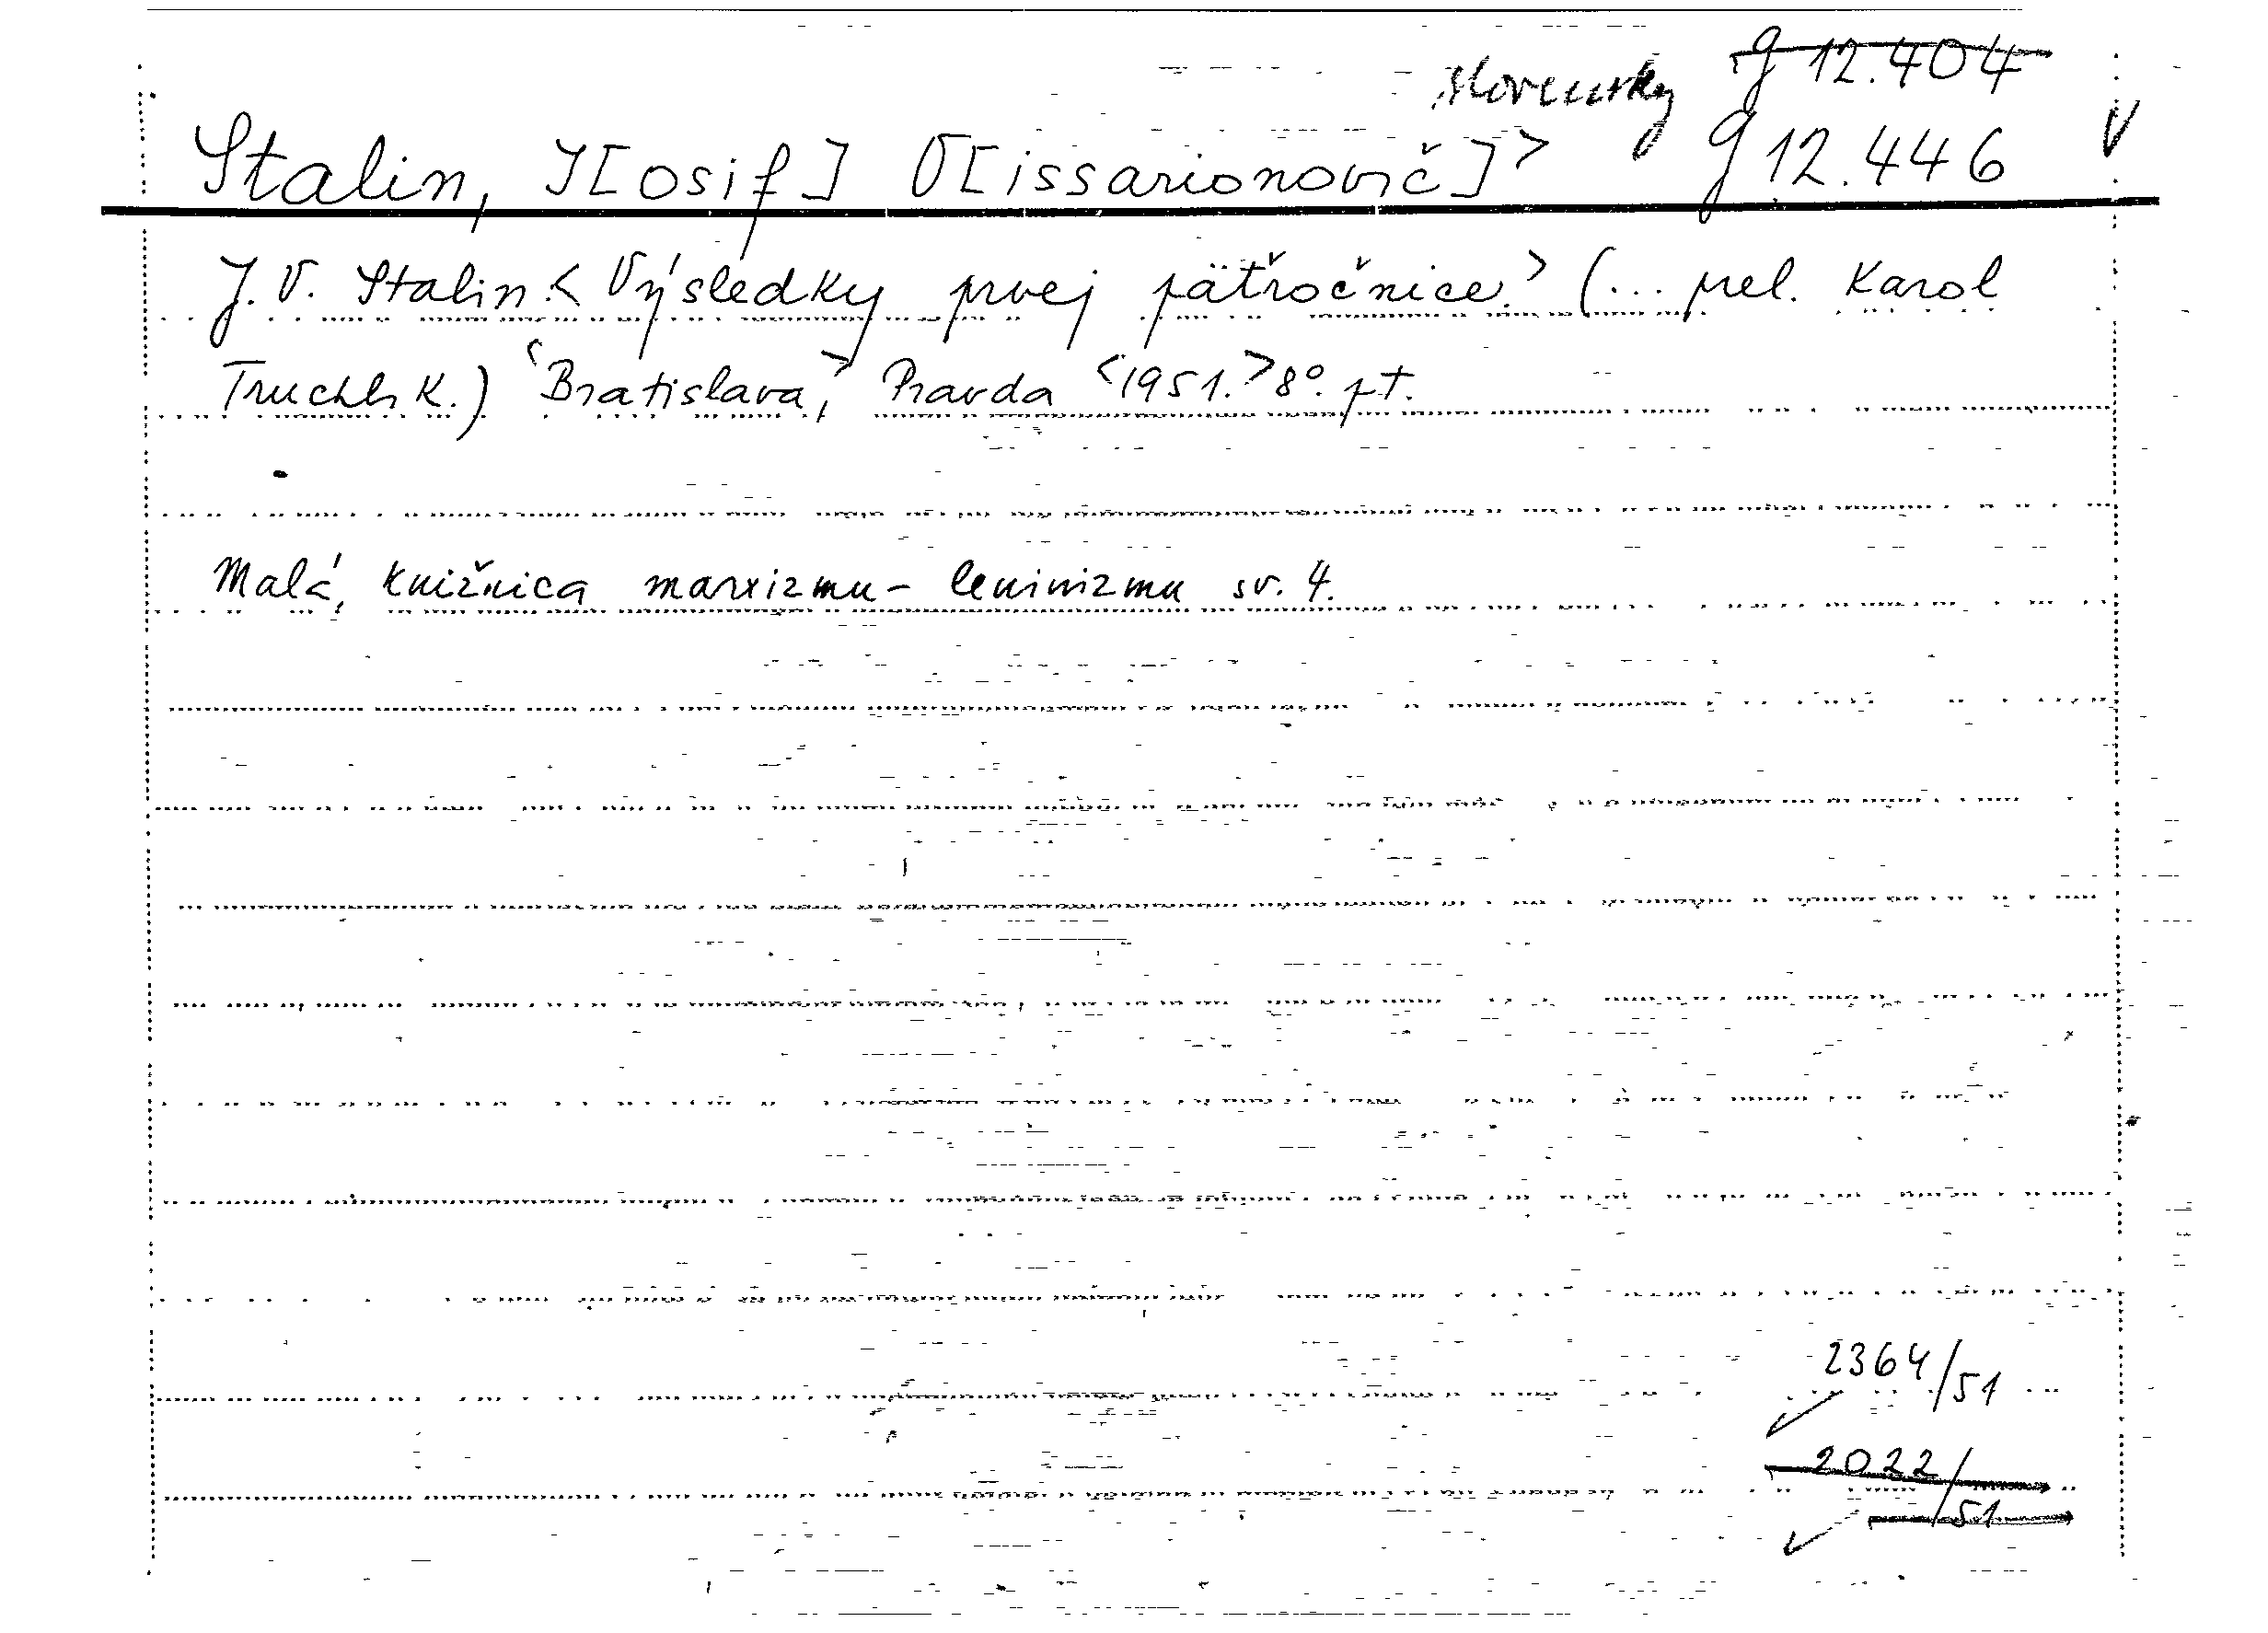 slovensky g 12.404
Stalin, J[osif] V[issarionovič]> g 12.446
J. V. Stalin.< Výsledky prvej päťročnice.> (... prel. Karol
Truchlík.) <Bratislava,> Pravda <1951.> 8°. pt.
Malá knižnica marxizmu-leninizmu sv. 4.
2364/51
2022/
51